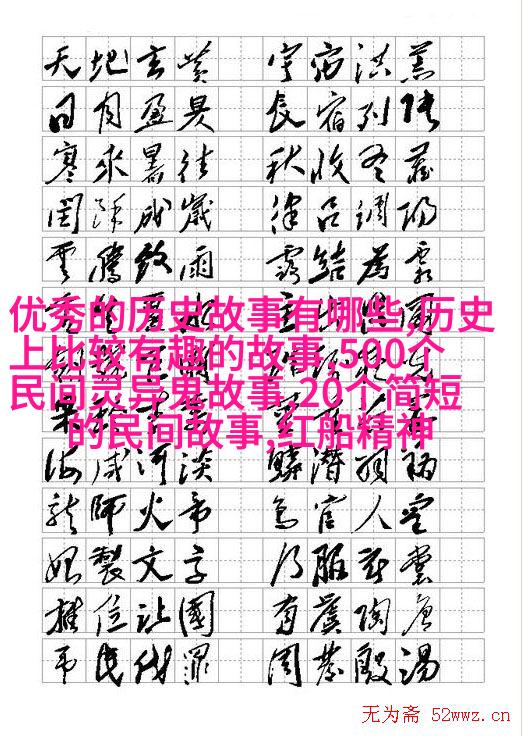 天地玄黄 宇宙洪荒
日月盈昃 辰宿列張
寒來暑往 秋收冬藏
閏餘成歲 律吕調陽
雲騰致雨 露結為霜
优秀的历史故事有哪些,历史
上比较有趣的故事,500个
民间灵异鬼故事,20个简短
的民间故事,红船精神
海咸河淡 鱗潛羽翔
龍師火帝 鳥官人皇
始製文字 乃服衣裳
推位让國 有虞陶唐
弔民伐罪 周發殷湯
无为斋 52wwz.cn